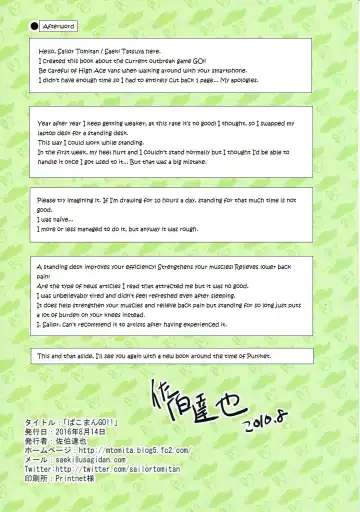 Afterword
Hello, Sailor Tomitan / Saeki Tatsuya here.
I created this book about the current outbreak game GO!!
Be careful of High Ace vans when walking around with your smartphone.
I didn't have enough time so I had to entirely cut back 1 page... My apologies.
Year after year I keep getting weaker, at this rate it's no good! I thought, so I swapped my
laptop desk for a standing desk.
This way I could work while standing.
In the first week, my heel hurt and I couldn't stand normally but I thought I'd be able to
handle it once I got used to it... But that was a big mistake.
Please try imagining it. If I'm drawing for 10 hours a day, standing for that much time is not
good.
I was naive...
I more or less managed to do it, but anyway it was rough.
A standing desk improves your efficiency! Strengthens your muscles! Relieves lower back
pain!
Are the type of news articles I read that attracted me but it was no good.
I was unbelievably tired and didn't feel refreshed even after sleeping.
It does help strengthen your muscles and relieve back pain but standing for so long just puts
a lot of burden on your knees instead.
I, Sailor, can't recommend it to artists after having experienced it.
This and that aside, I'll see you again with a new book around the time of Puniket.
佐伯達也
2016.8
タイトル:「ぱこまんGO!!」
発行日:2016年8月14日
発行者:佐伯達也
ホームページ:http://mtomita.blog5.fc2.com/
メール:saeki@usagidan.com
Twitter:http://twitter.com/sailortomitan
印刷所:Printnet様